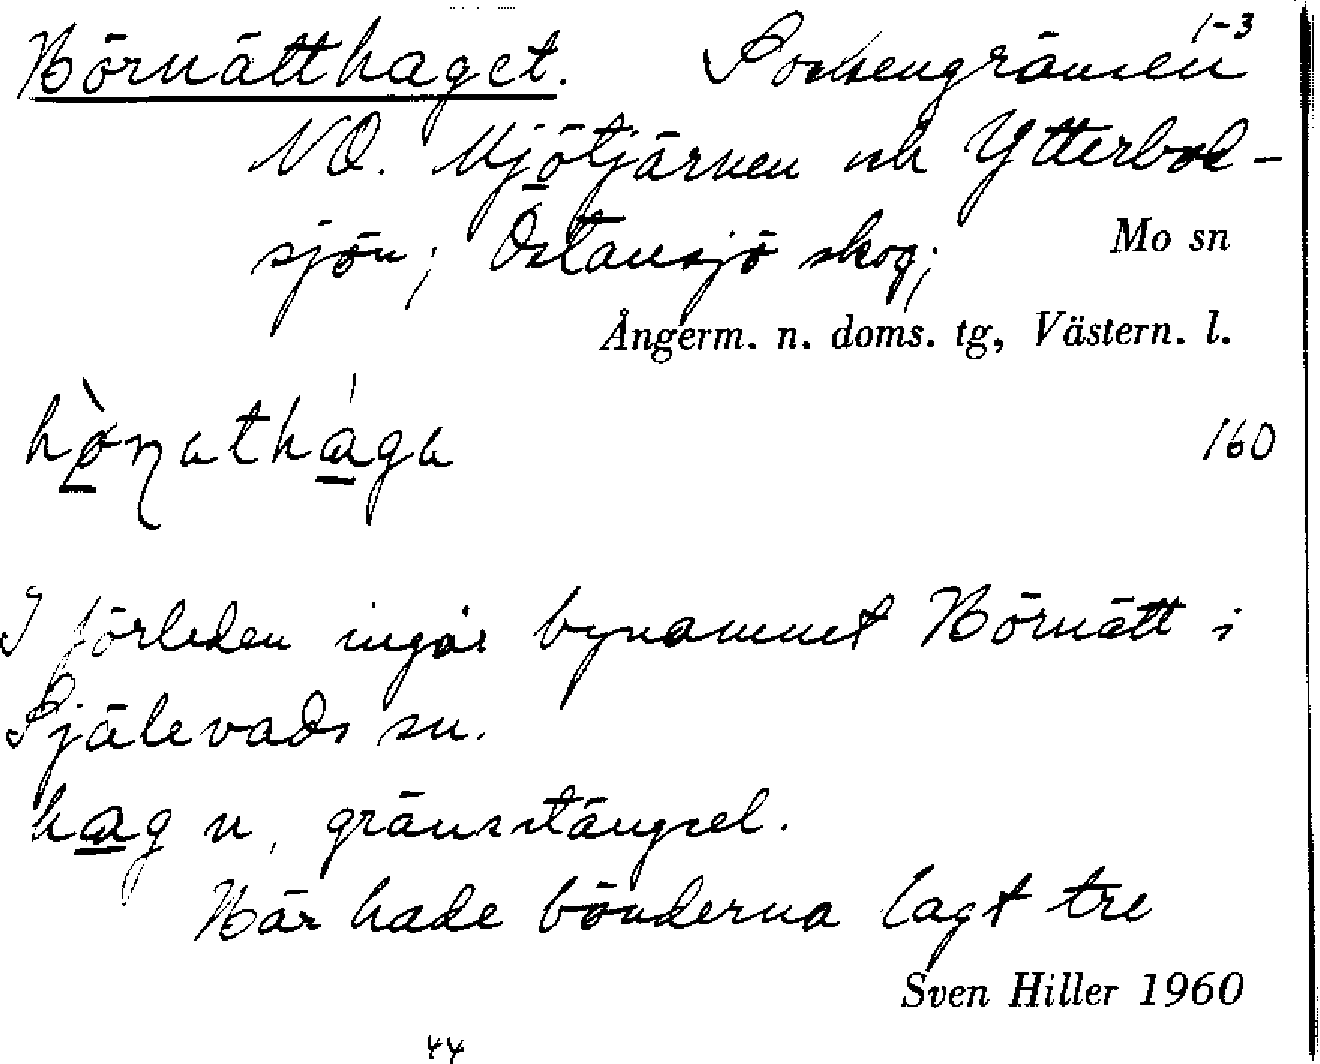 Hörnätthaget. Sockengränsen 1-3
NO. Mjötjärnen och Ytterbod-
sjön; Östansjö skog; Mo sn
Ångerm. n. doms. tg, Västern. l.
hø̀ɳathága 160
I förleden ingår bynamnet Hörnätt i
Själevads sn.
hag n, gränsstängsel.
Här hade bönderna lagt tre
Sven Hiller 1960
44